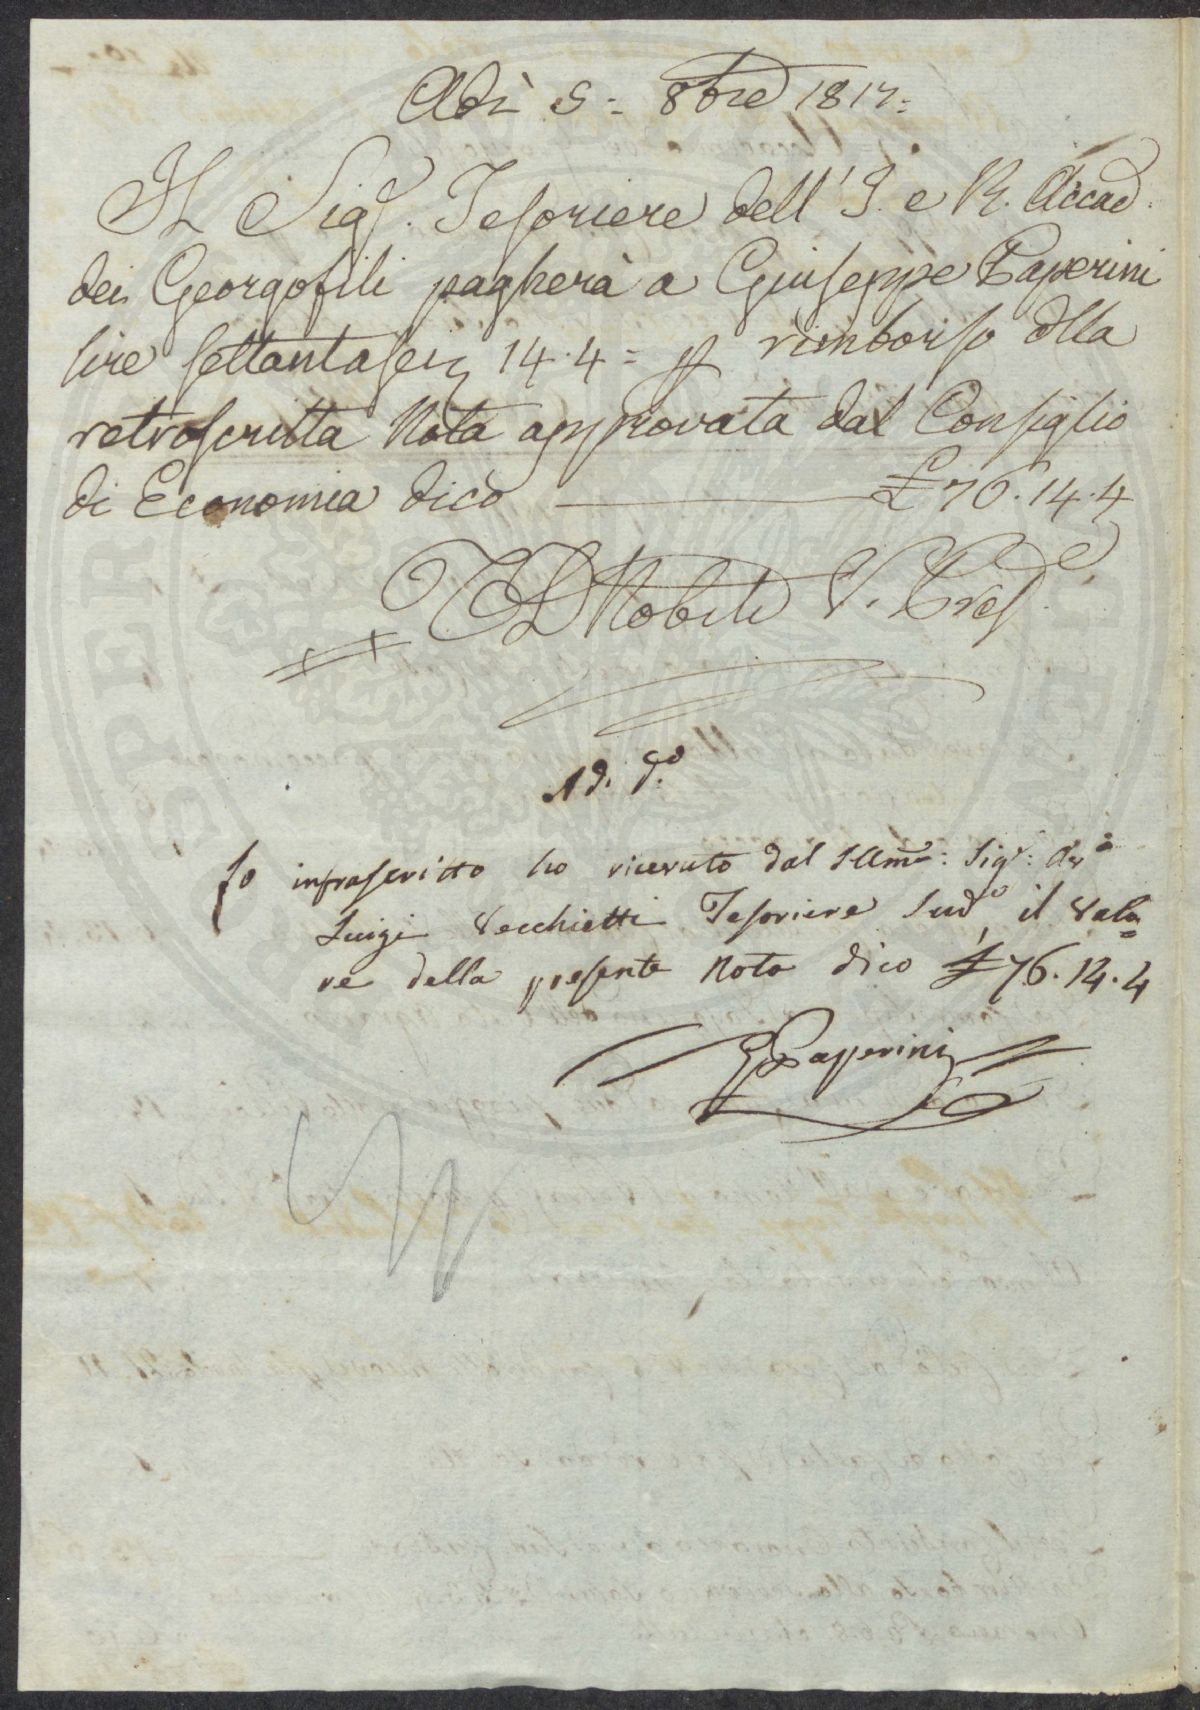 Adì 5= 8bre 1817=
Il Sigr. Tesoriere dell'I. e R. Accad.
dei Georgofili pagherà a Giuseppe Paperini
lire settantasei, 14.4= p rimborso della
retroscritta Nota approvata dal Consiglio
di Economia dico £76.14.4
Nobili V. Pres
Adì do
Io infrascritto ho ricevuto dal Illmo: Sigr:
Luigi Vecchietti Tesoriere Sudo il Valo
re della presente Nota dico £76.14.4
G Paperini